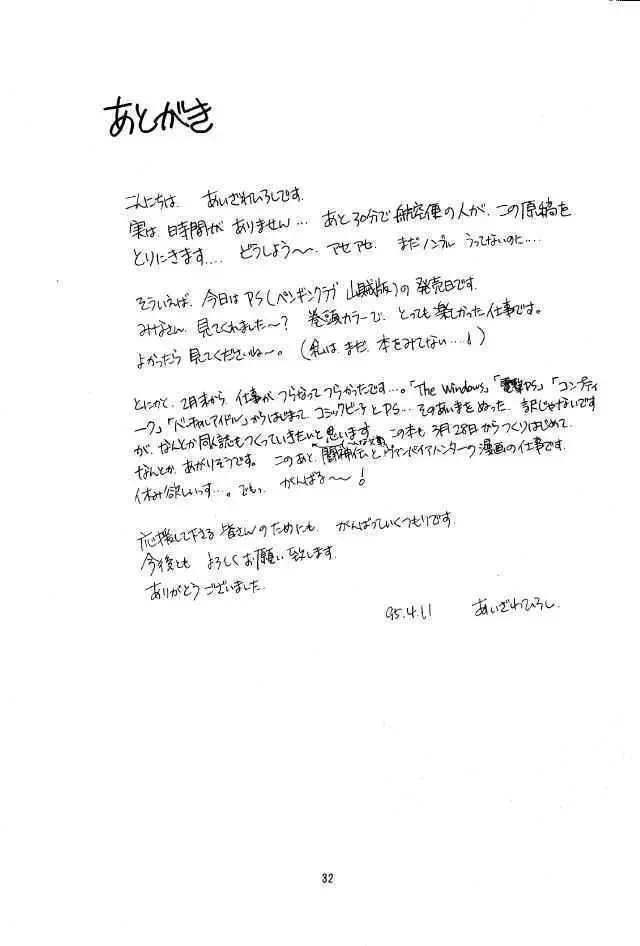 あとがき
こんにちは あいざわひろしです.
実は 時間が ありません… あと30分で 航空便の人が、この原稿を
とりにきます…. どうしよう〜. アセアセ. まだノンブル うってないのに….
そういえば、今日は PS(ペンギンクラブ 山賊版)の 発売日です.
みなさん、見てくれました〜? 巻頭カラーで、とっても 楽しかった 仕事です。
よかったら 見てくださいね〜。 (私は、まだ 本をみてない….!)
とにかく、2月末から 仕事が つらなって つらかったです…。「The Windows」「電撃PS」「コンプティ
ーク」「バーチャルアイドル」からはじまって コミックピー子とPS… そのあいまをぬった 訳じゃないです
が、なんとか同人誌もつくっていきたいと思います この本も 3月28日からつくりはじめて、
なんとか あがりそうです。 このあと、闘神伝とヴァンパイアハンターの漫画の仕事です.
休み欲しいっす…。でもっ がんばる〜!
応援して下さる 皆さんのためにも がんばっていくつもりです
今後とも よろしくお願い致します
ありがとうございました.
95.4.11 あいざわひろし.
32